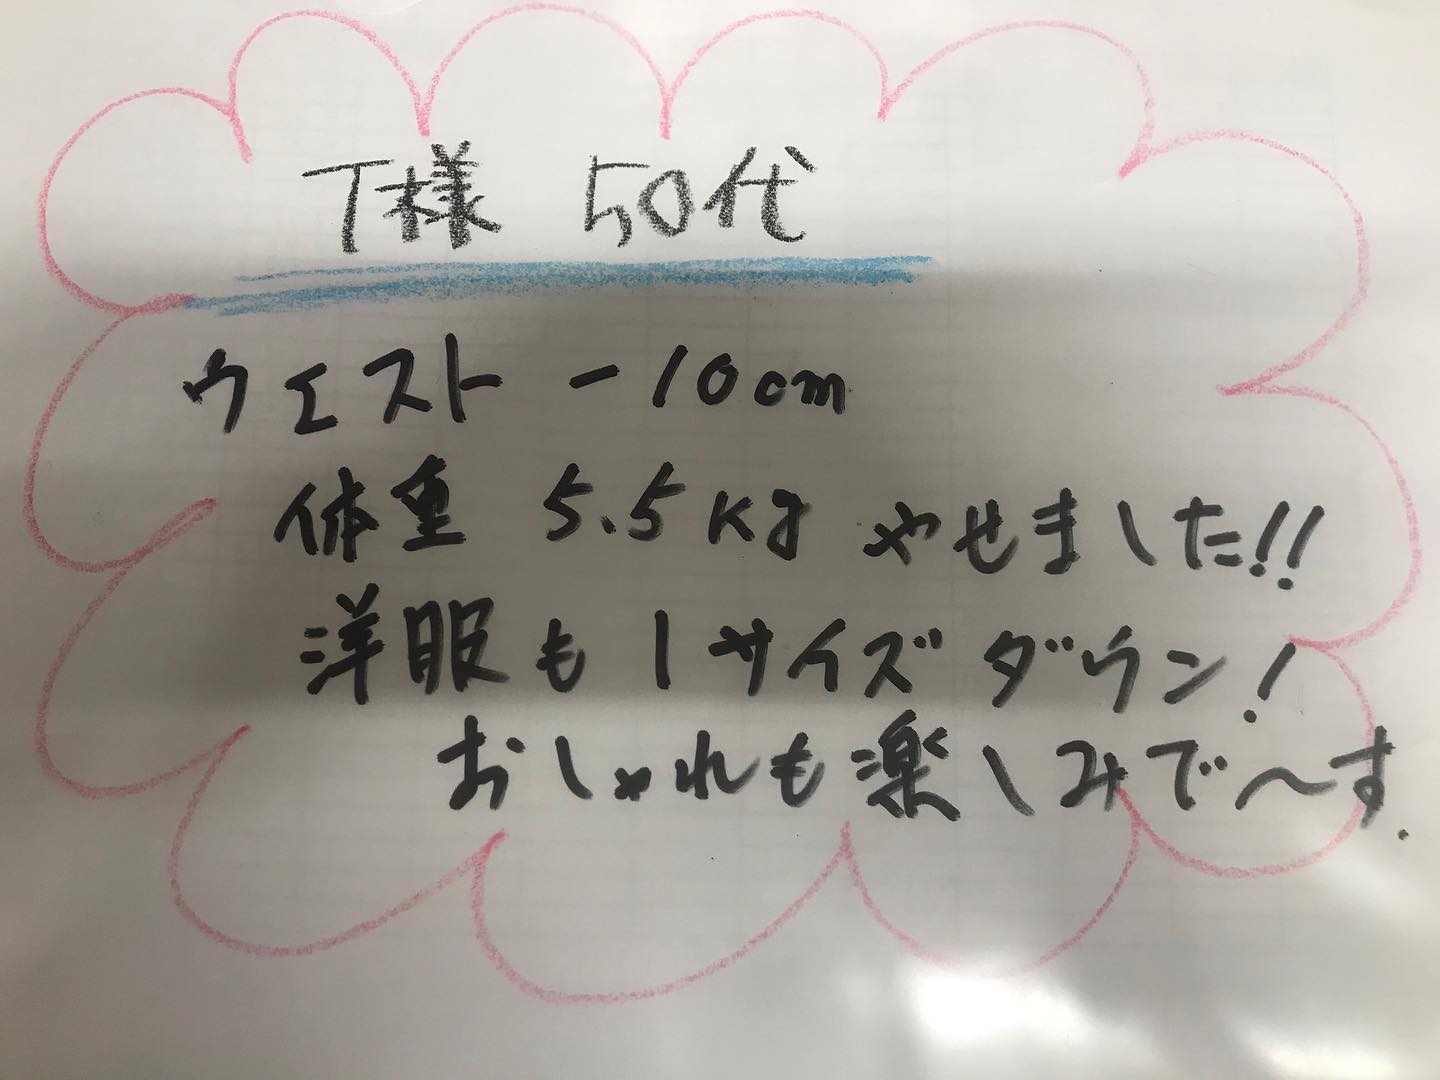 T様 50代
ウエスト -10cm
体重 5.5kg やせました!!
洋服も1サイズダウン!
おしゃれも楽しみで〜す.